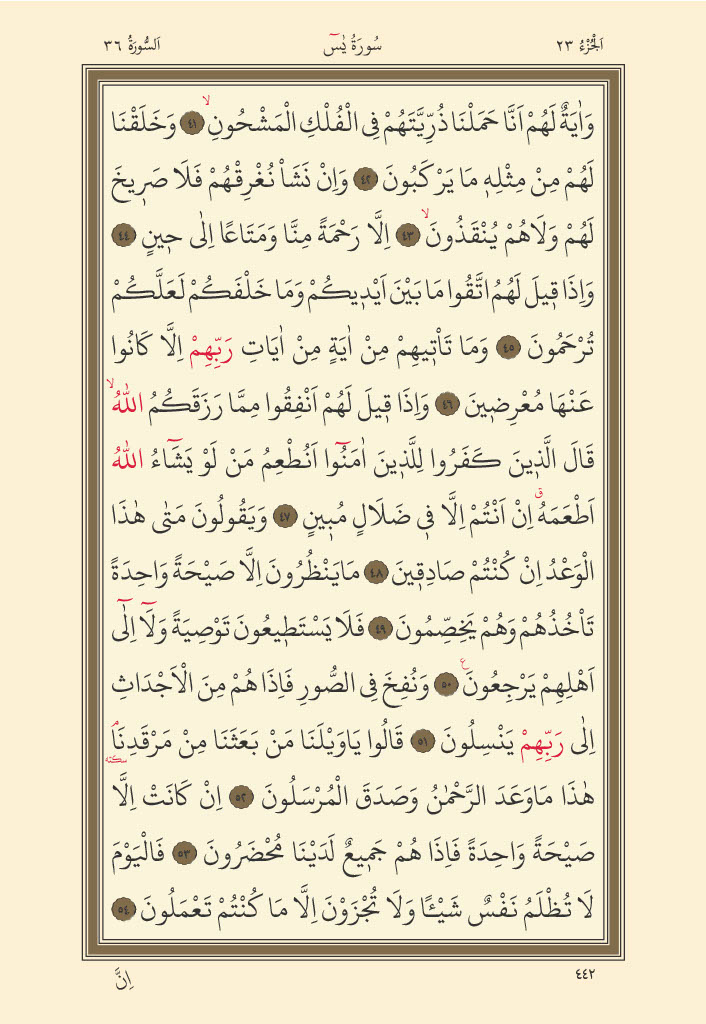 اَلْجُزْءُ ٢٣
سُورَةُ يٰسٓ
اَلسُّورَةُ ٣٦
وَاٰيَةٌ لَهُمْ اَنَّا حَمَلْنَا ذُرِّيَّتَهُمْ فِى الْفُلْكِ الْمَشْحُونِۙ ﴿٤١﴾ وَخَلَقْنَا
لَهُمْ مِنْ مِثْلِه۪ مَا يَرْكَبُونَ ﴿٤٢﴾ وَاِنْ نَشَأْ نُغْرِقْهُمْ فَلَا صَر۪يخَ
لَهُمْ وَلَاهُمْ يُنْقَذُونَۙ ﴿٤٣﴾ اِلَّا رَحْمَةً مِنَّا وَمَتَاعًا اِلٰى ح۪ينٍ ﴿٤٤﴾
وَاِذَا ق۪يلَ لَهُمُ اتَّقُوا مَا بَيْنَ اَيْد۪يكُمْ وَمَا خَلْفَكُمْ لَعَلَّكُمْ
تُرْحَمُونَ ﴿٤٥﴾ وَمَا تَأْت۪يهِمْ مِنْ اٰيَةٍ مِنْ اٰيَاتِ رَبِّهِمْ اِلَّا كَانُوا
عَنْهَا مُعْرِض۪ينَ ﴿٤٦﴾ وَاِذَا ق۪يلَ لَهُمْ اَنْفِقُوا مِمَّا رَزَقَكُمُ اللّٰهُۙ
قَالَ الَّذ۪ينَ كَفَرُوا لِلَّذ۪ينَ اٰمَنُٓوا اَنُطْعِمُ مَنْ لَوْ يَشَٓاءُ اللّٰهُ
اَطْعَمَهُۗ اِنْ اَنْتُمْ اِلَّا ف۪ى ضَلَالٍ مُب۪ينٍ ﴿٤٧﴾ وَيَقُولُونَ مَتٰى هٰذَا
الْوَعْدُ اِنْ كُنْتُمْ صَادِق۪ينَ ﴿٤٨﴾ مَايَنْظُرُونَ اِلَّا صَيْحَةً وَاحِدَةً
تَأْخُذُهُمْ وَهُمْ يَخِصِّمُونَ ﴿٤٩﴾ فَلَا يَسْتَط۪يعُونَ تَوْصِيَةً وَلَٓا اِلٰٓى
اَهْلِهِمْ يَرْجِعُونَ۟ ﴿٥٠﴾ وَنُفِخَ فِى الصُّورِ فَاِذَا هُمْ مِنَ الْاَجْدَاثِ
اِلٰى رَبِّهِمْ يَنْسِلُونَ ﴿٥١﴾ قَالُوا يَاوَيْلَنَا مَنْ بَعَثَنَا مِنْ مَرْقَدِنَاۢ سكته
هٰذَا مَاوَعَدَ الرَّحْمٰنُ وَصَدَقَ الْمُرْسَلُونَ ﴿٥٢﴾ اِنْ كَانَتْ اِلَّا
صَيْحَةً وَاحِدَةً فَاِذَا هُمْ جَم۪يعٌ لَدَيْنَا مُحْضَرُونَ ﴿٥٣﴾ فَالْيَوْمَ
لَا تُظْلَمُ نَفْسٌ شَيْـًٔا وَلَا تُجْزَوْنَ اِلَّا مَا كُنْتُمْ تَعْمَلُونَ ﴿٥٤﴾
٤٤٢
اِنَّ